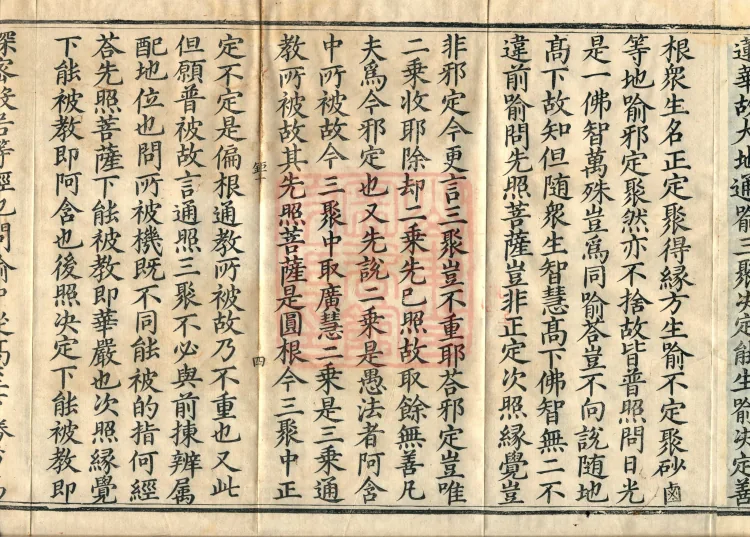 蓮華故大地通喻三聚決定能生喻決定善
根衆生名正定聚得緣方生喻不定聚砂鹵
等地喻邪定聚然亦不捨故皆普照問日光
是一佛智萬殊豈爲同喻荅豈不向說隨地
髙下故知但隨衆生智慧髙下佛智無二不
違前喻問先照菩薩豈非正定次照緣覺豈
非邪定今更言三聚豈不重耶荅邪定豈唯
二乗收耶除却二乗先已照故取餘無善凡
夫爲今邪定也又先說二乗是愚法者阿含
中所被故今三聚中取廣慧二乗是三乗通
教所被故其先照菩薩是圓根今三聚中正
四
定不定是偏根通教所被故乃不重也又此
但願普被故言通照三聚不必與前揀辨属
配地位也問所被機既不同能被的指何經
荅先照菩薩下能被教即華嚴也次照緣覺
下能被教即阿含也後照決定下能被教即
深密般若等經也問喻中從髙至下